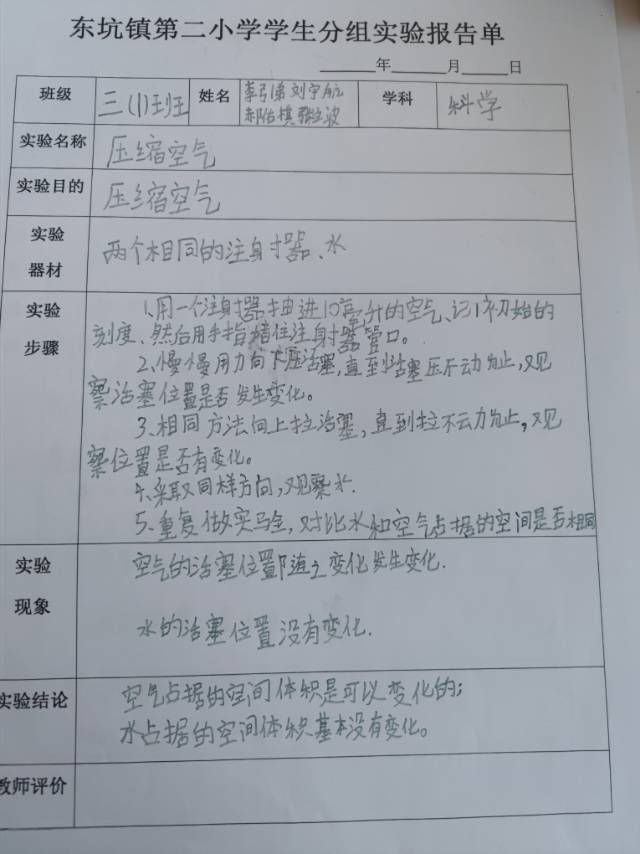 东坑镇第二小学学生分组实验报告单
年 月 日
班级 三(1)班 姓名 刘宇航 学科 科学
实验名称 压缩空气
实验目的 压缩空气
实验器材 两个相同的注射器、水
实验步骤
1、用一个注射器抽进10毫升的空气、记下初始的
刻度、然后用手指堵住注射器管口。
2、慢慢用力向下压活塞,直到活塞压不动为止,观
察活塞位置是否发生变化。
3、相同方法向上拉活塞,直到拉不动为止,观
察位置是否有变化。
4、采取同样方向,观察水.
5、重复做实验,对比水和空气占据的空间是否相同
实验现象
空气的活塞位置随之变化发生变化.
水的活塞位置没有变化.
实验结论
空气占据的空间体积是可以变化的;
水占据的空间体积基本没有变化。
教师评价